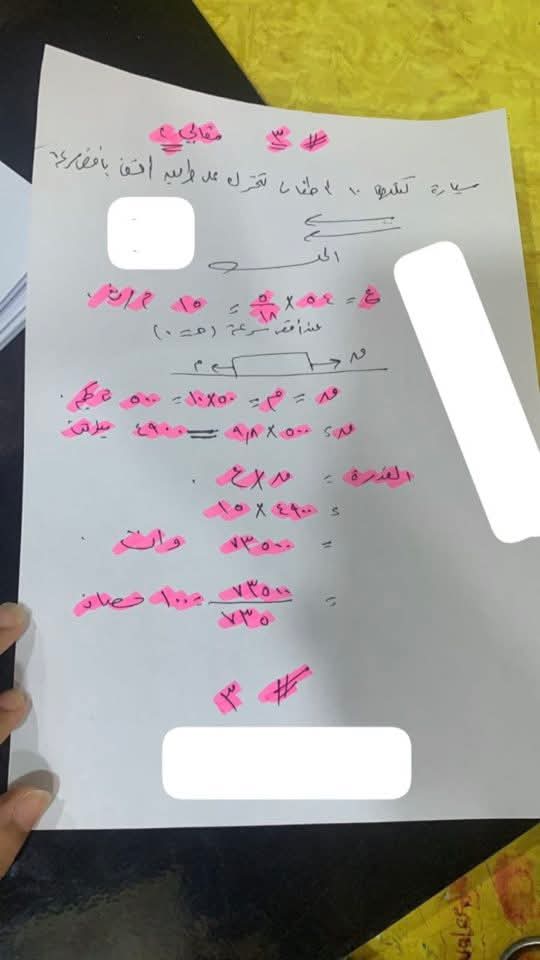 # ٣ مقالي ٢
سيارة كتلتها ١٠ اطنان تتحرك على طريق افقي بأقصى سرعة
الحل
ع = ٥٤ × ٥/١٨ = ١٥ م/ث
عند اقصى سرعة (جـ = ٠)
م ق
ق = م = ٥٠ × ١٠ = ٥٠٠ ث كجم
ق = ٥٠٠ × ٩,٨ = ٤٩٠٠ نيوتن
القدرة = ق × ع
= ٤٩٠٠ × ١٥
= ٧٣٥٠٠ وات
= ٧٣٥٠٠/٧٣٥ = ١٠٠ حصان
# ٣